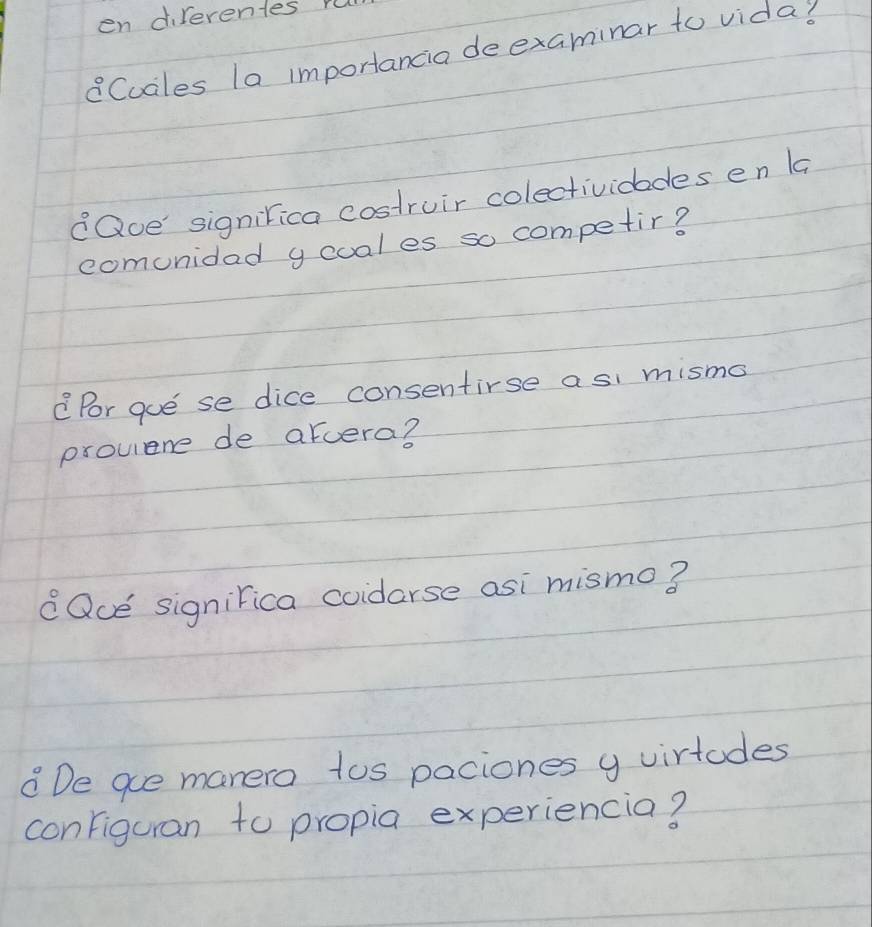 en diferentes
¿Cuáles la importancia de examinar tu vida?
¿Qué significa costruir colectividades en la
comunidad y cual es su competir?
¿Por qué se dice consentirse a si mismo
proviene de afuera?
¿Qué significa cuidarse asi mismo?
¿De que manera tus paciones y virtudes
configuran tu propia experiencia?